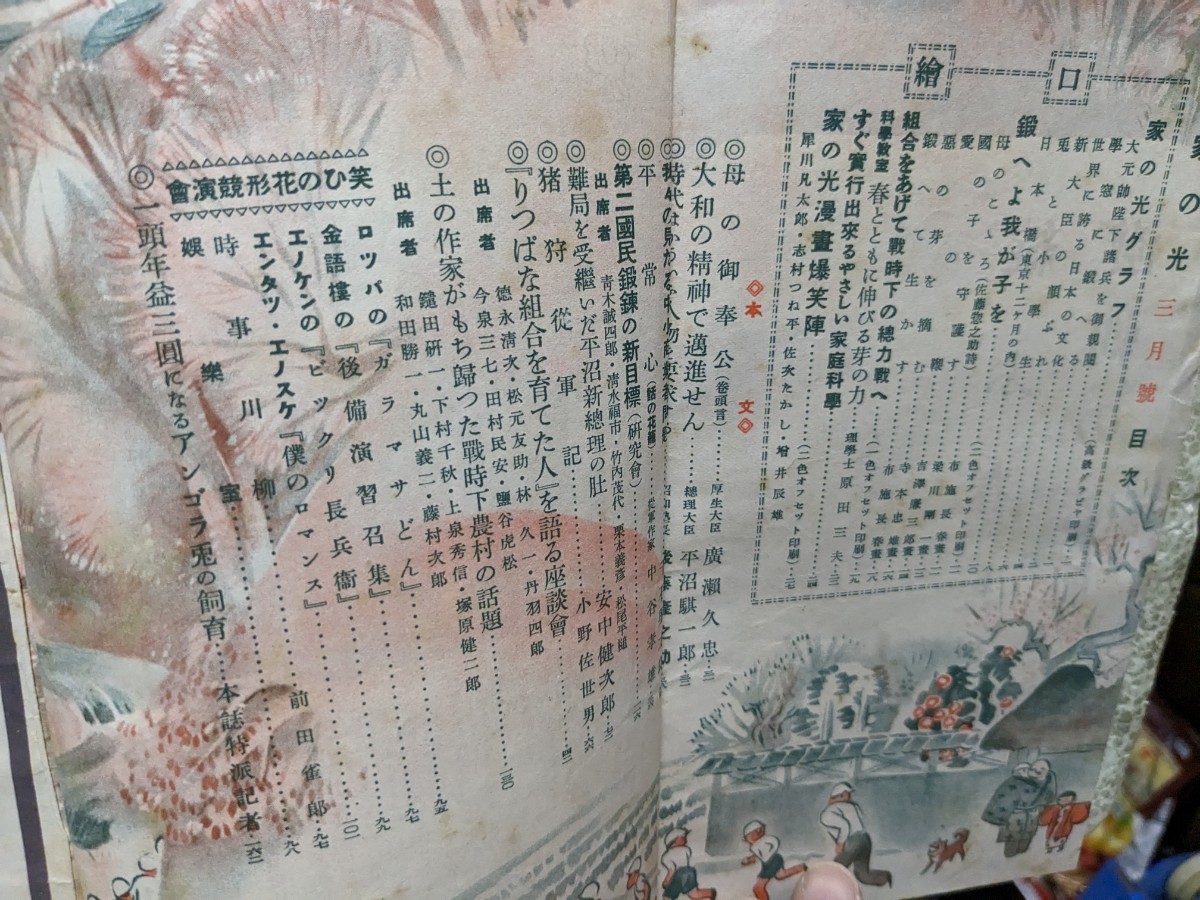 家の光 三月號 目次
口繪
家の光グラフ…(高級グラビヤ印刷)…一
大元帥陛下諸兵を御親閲
學窓に鍛へる
世界に誇る日本の文化
新大臣の顔ぶれ
兎と小學生
日本橋(東京十二ケ月の内)
鍛へよ我が子を…(二色オフセット印刷)
母のこゝろ(佐藤惣之助詩)
國の子を守護す
愛の鞭
惡の芽を摘む
鍛へて生かす
組合をあげて戰時下の總力戰へ…(一色オフセット印刷)…一九
科學教室 春とともに伸びる芽の力…理學士 原田三夫
すぐ實行出來るやさしい家庭科學
家の光漫畫爆笑陣…(二色オフセット印刷)…二七
犀川凡太郎・志村つね平・佐次たかし・増井辰雄
◇本文◇
◎母の御奉公(卷頭言)…厚生大臣 廣瀬久忠
◎大和の精神で邁進せん…總理大臣 平沼騏一郎
◎平常心(話の花籠)…從軍作家 中谷孝雄
◎第二國民鍛錬の新目標(研究會)
出席者 青木誠四郎・清水福市・竹内茂代・栗本義彦・松尾平植
◎難局を受繼いだ平沼新總理の肚…安中健次郎
◎猪狩從軍記…小野佐世男
◎『りつぱな組合を育てた人』を語る座談會
出席者 徳永清次・松元友助・林久一・丹羽四郎
今泉三七・田村民安・鹽谷虎松
◎土の作家がもち歸つた戰時下農村の話題
出席者 鑓田研一・下村千秋・上泉秀信・塚原健二郎
和田勝一・丸山義二・藤村次郎…九五
笑ひの花形競演會
ロツパの『ガラマサどん』…九七
金語樓の『後備演習召集』…九九
エノケンの『ビックリ長兵衞』…一〇一
エンタツ・エノスケ『僕のロマンス』
時事川柳…前田雀郎…九七
娯樂室…九八
◎一頭年益三圓になるアンゴラ兎の飼育…本誌特派記者